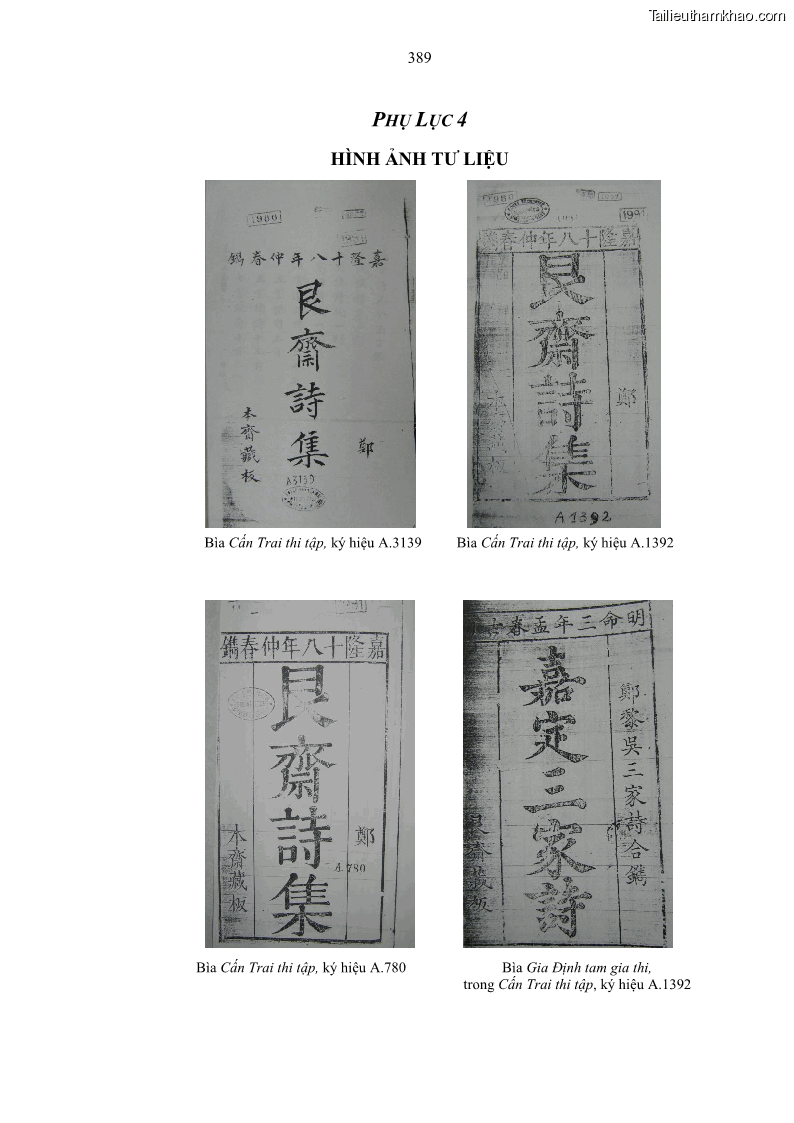 Tailieuthamkhao.com
389
PHỤ LỤC 4
HÌNH ẢNH TƯ LIỆU
1980
嘉隆十八年仲春鐫
艮齋詩集
鄭
本齋藏板
A3139
1991
嘉隆十八年仲春鐫
艮齋詩集
鄭
本齋藏板
A 1392
Bìa Cấn Trai thi tập, ký hiệu A.3139
Bìa Cấn Trai thi tập, ký hiệu A.1392
嘉隆十八年仲春鐫
艮齋詩集
鄭
本齋藏板
A 780
明命三年孟春
鄭黎吳三家詩合鐫
嘉定三家詩
艮齋藏板
Bìa Cấn Trai thi tập, ký hiệu A.780
Bìa Gia Định tam gia thi,
trong Cấn Trai thi tập, ký hiệu A.1392